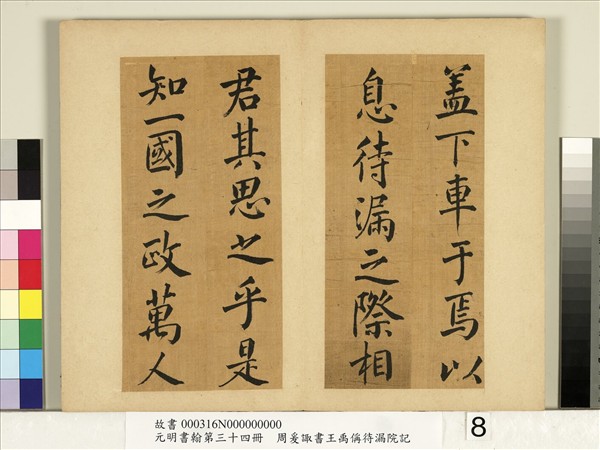 盖下車于焉以
息待漏之際相
君其思之乎是
知一國之政萬人
故書 000316N000000000
元明書翰第三十四冊 周爰諏書王禹偁待漏院記
8